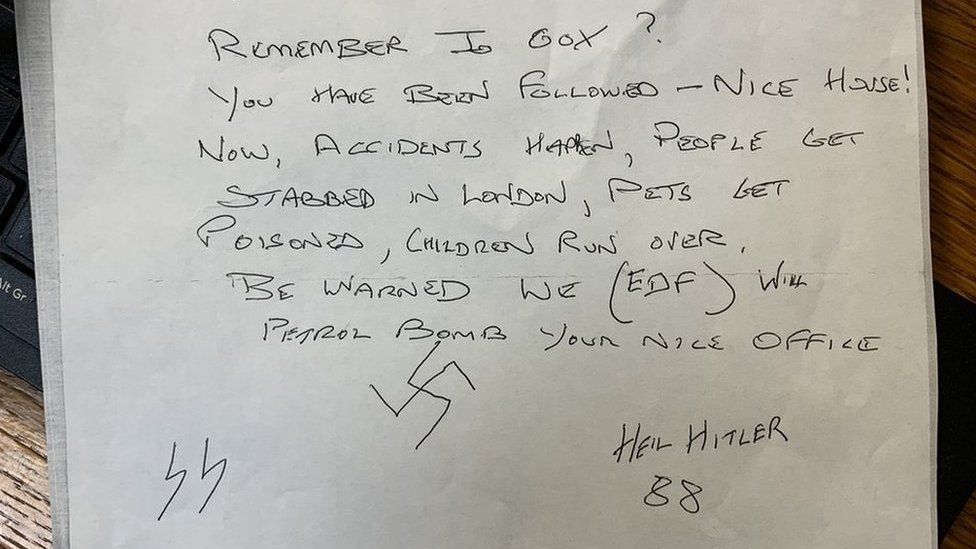 REMEMBER JO COX?
YOU HAVE BEEN FOLLOWED - NICE HOUSE!
NOW, ACCIDENTS HAPPEN, PEOPLE GET
STABBED IN LONDON, PETS GET
POISONED, CHILDREN RUN OVER.
BE WARNED WE (EDF) WILL
PETROL BOMB YOUR NICE OFFICE
SS
HEIL HITLER
88
Alt Gr